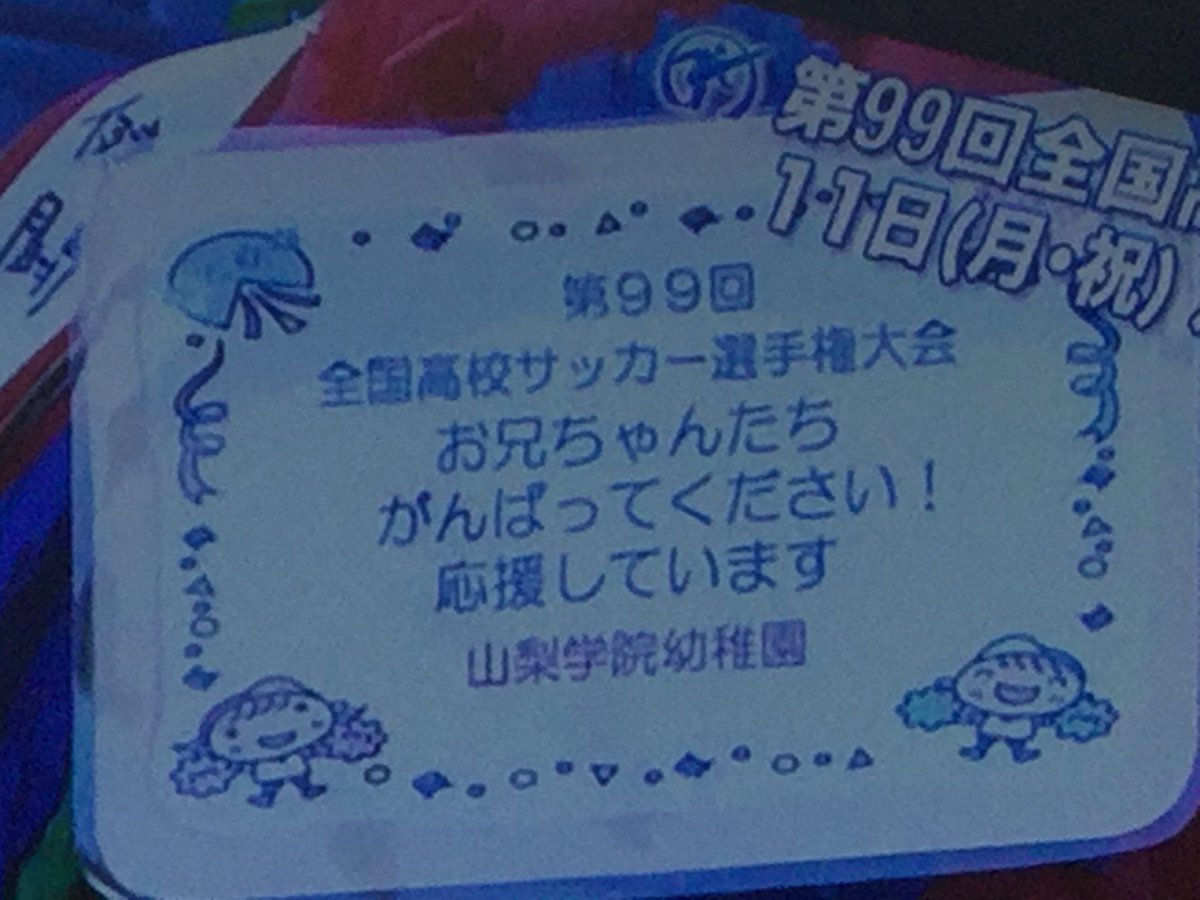 第99回全国
11日(月・祝)
第99回
全国高校サッカー選手権大会
お兄ちゃんたち
がんばってください！
応援しています
山梨学院幼稚園